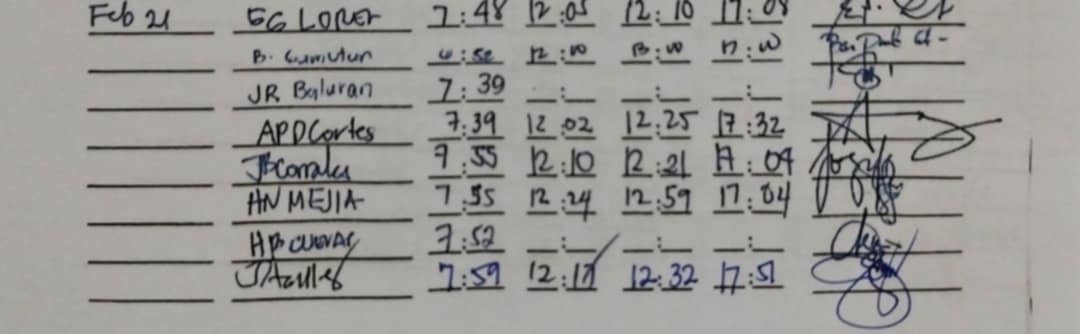 Feb 21 EG LORET 7:48 12:05 12:10 17:08
B. 6:52 12:00 13:00 17:00
JR Baluran 7:39 __:__ __:__ __:__
APDCortes 7:39 12:02 12:25 17:32
JBCorrales 7:55 12:10 12:21 17:09
HN MEJIA 7:55 12:24 12:59 17:04
HB CUEVAS 7:52 __:__ __:__ __:__
7:59 12:17 12:32 17:51